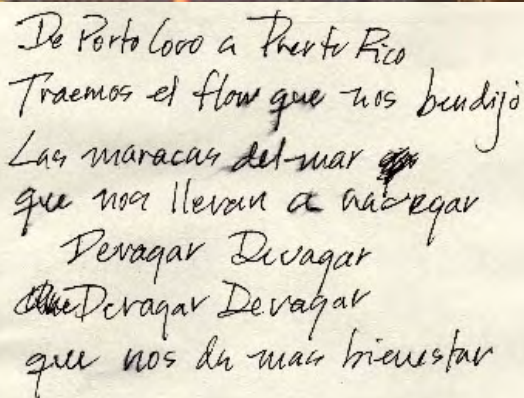 De Porto Covo a Puerto Rico
Traemos el flow que nos bendijo
Las maracas del mar
que nos llevan a navegar
Devagar Devagar
Devagar Devagar
que nos da mas bienestar